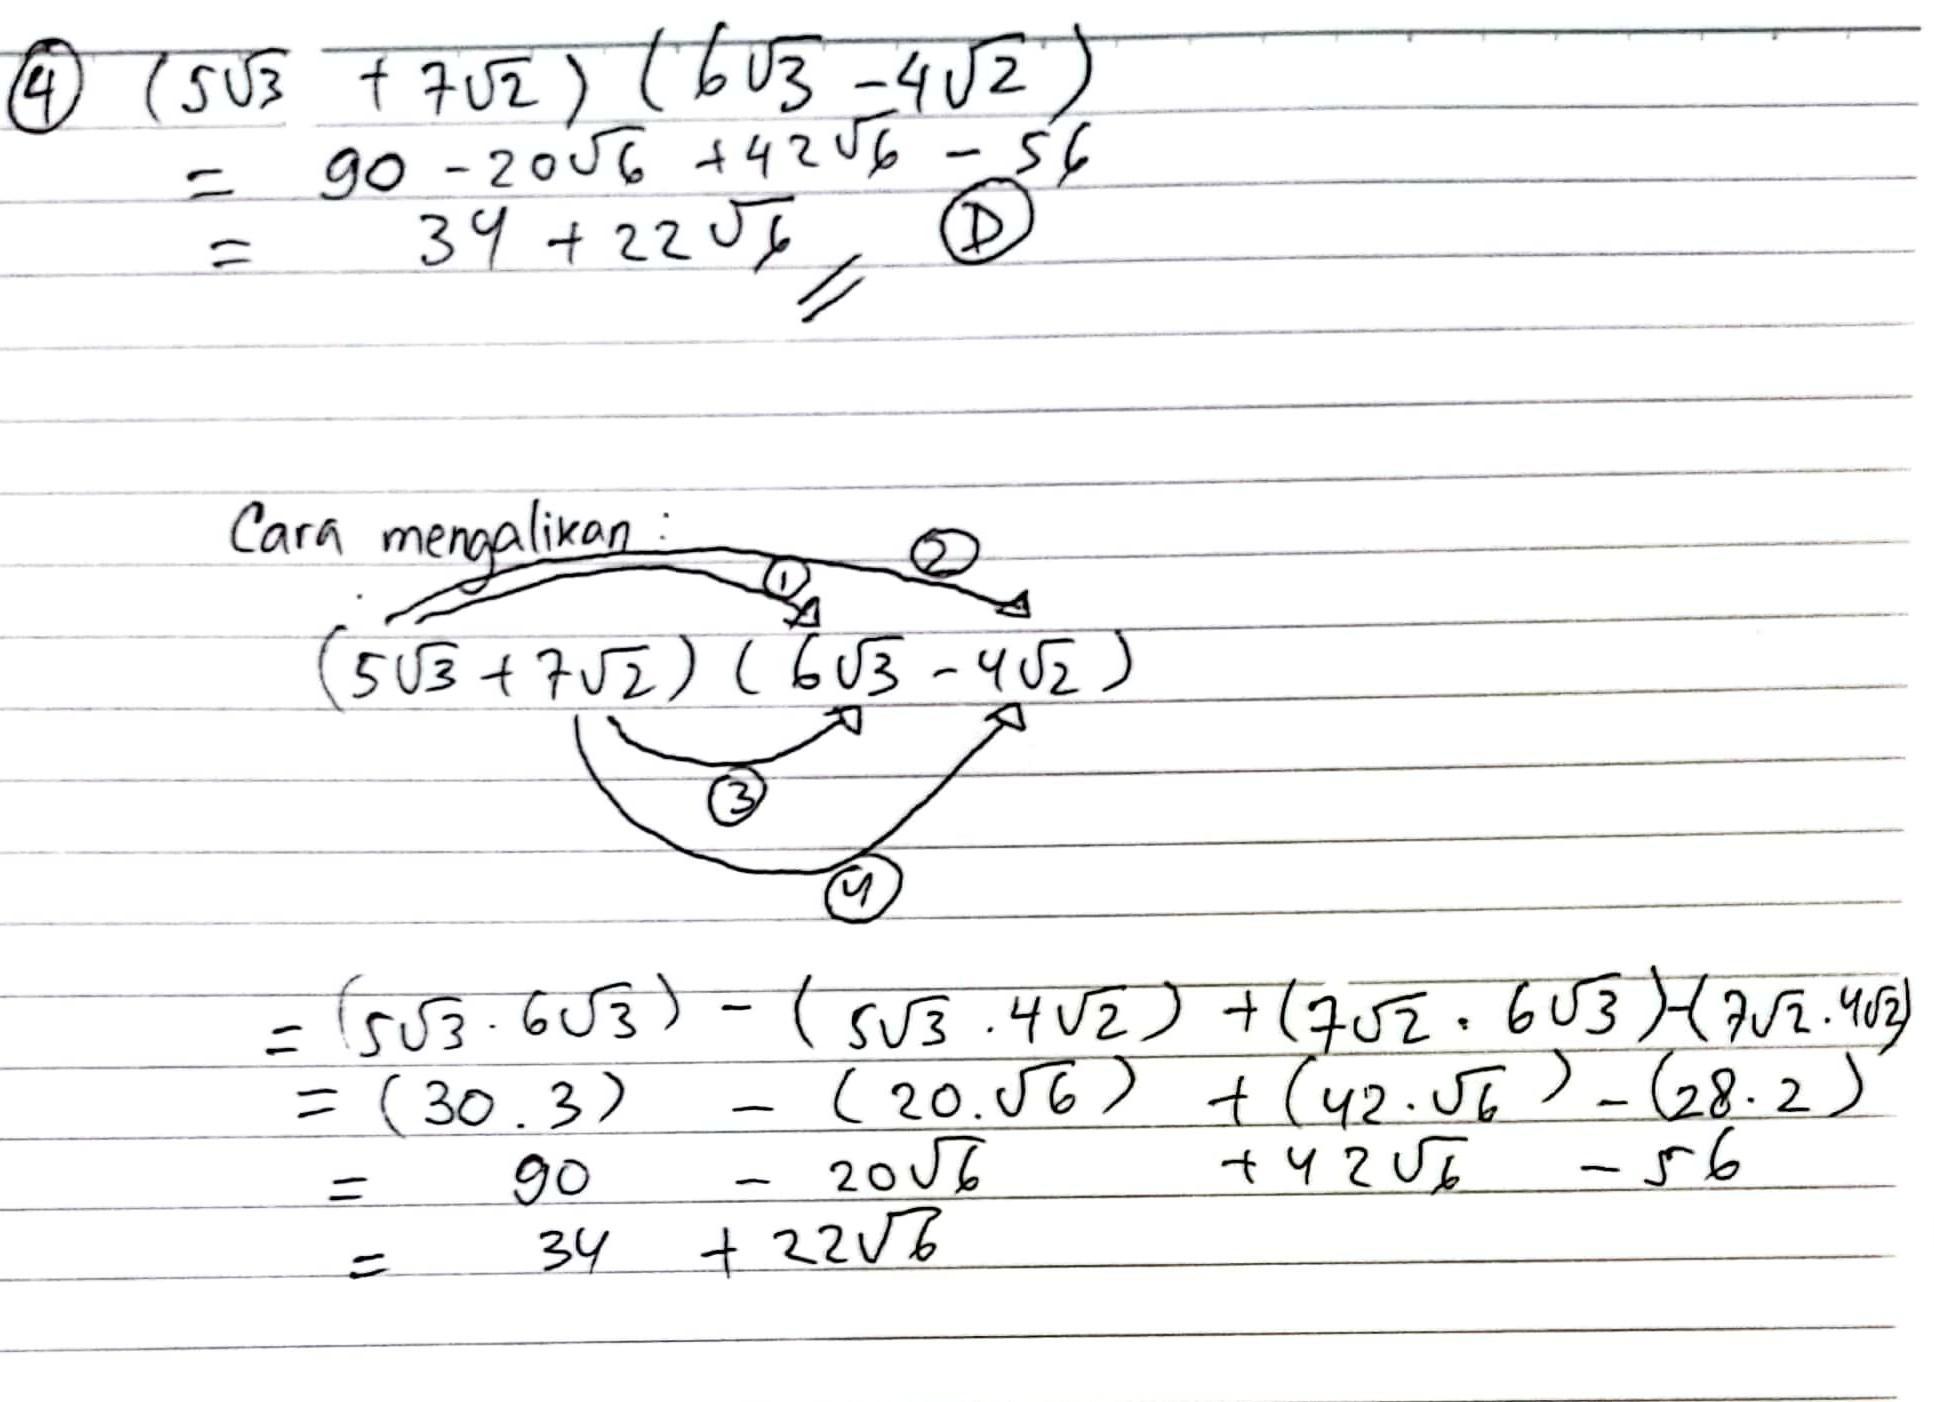 ④ (5√3 + 7√2) (6√3 - 4√2)
= 90 - 20√6 + 42√6 - 56
= 34 + 22√6 Ⓓ
Cara mengalikan :
① ②
(5√3 + 7√2) (6√3 - 4√2)
③
④
= (5√3 . 6√3) - (5√3 . 4√2) + (7√2 . 6√3) - (7√2 . 4√2)
= (30 . 3) - (20 . √6) + (42 . √6) - (28 . 2)
= 90 - 20√6 + 42√6 - 56
= 34 + 22√6